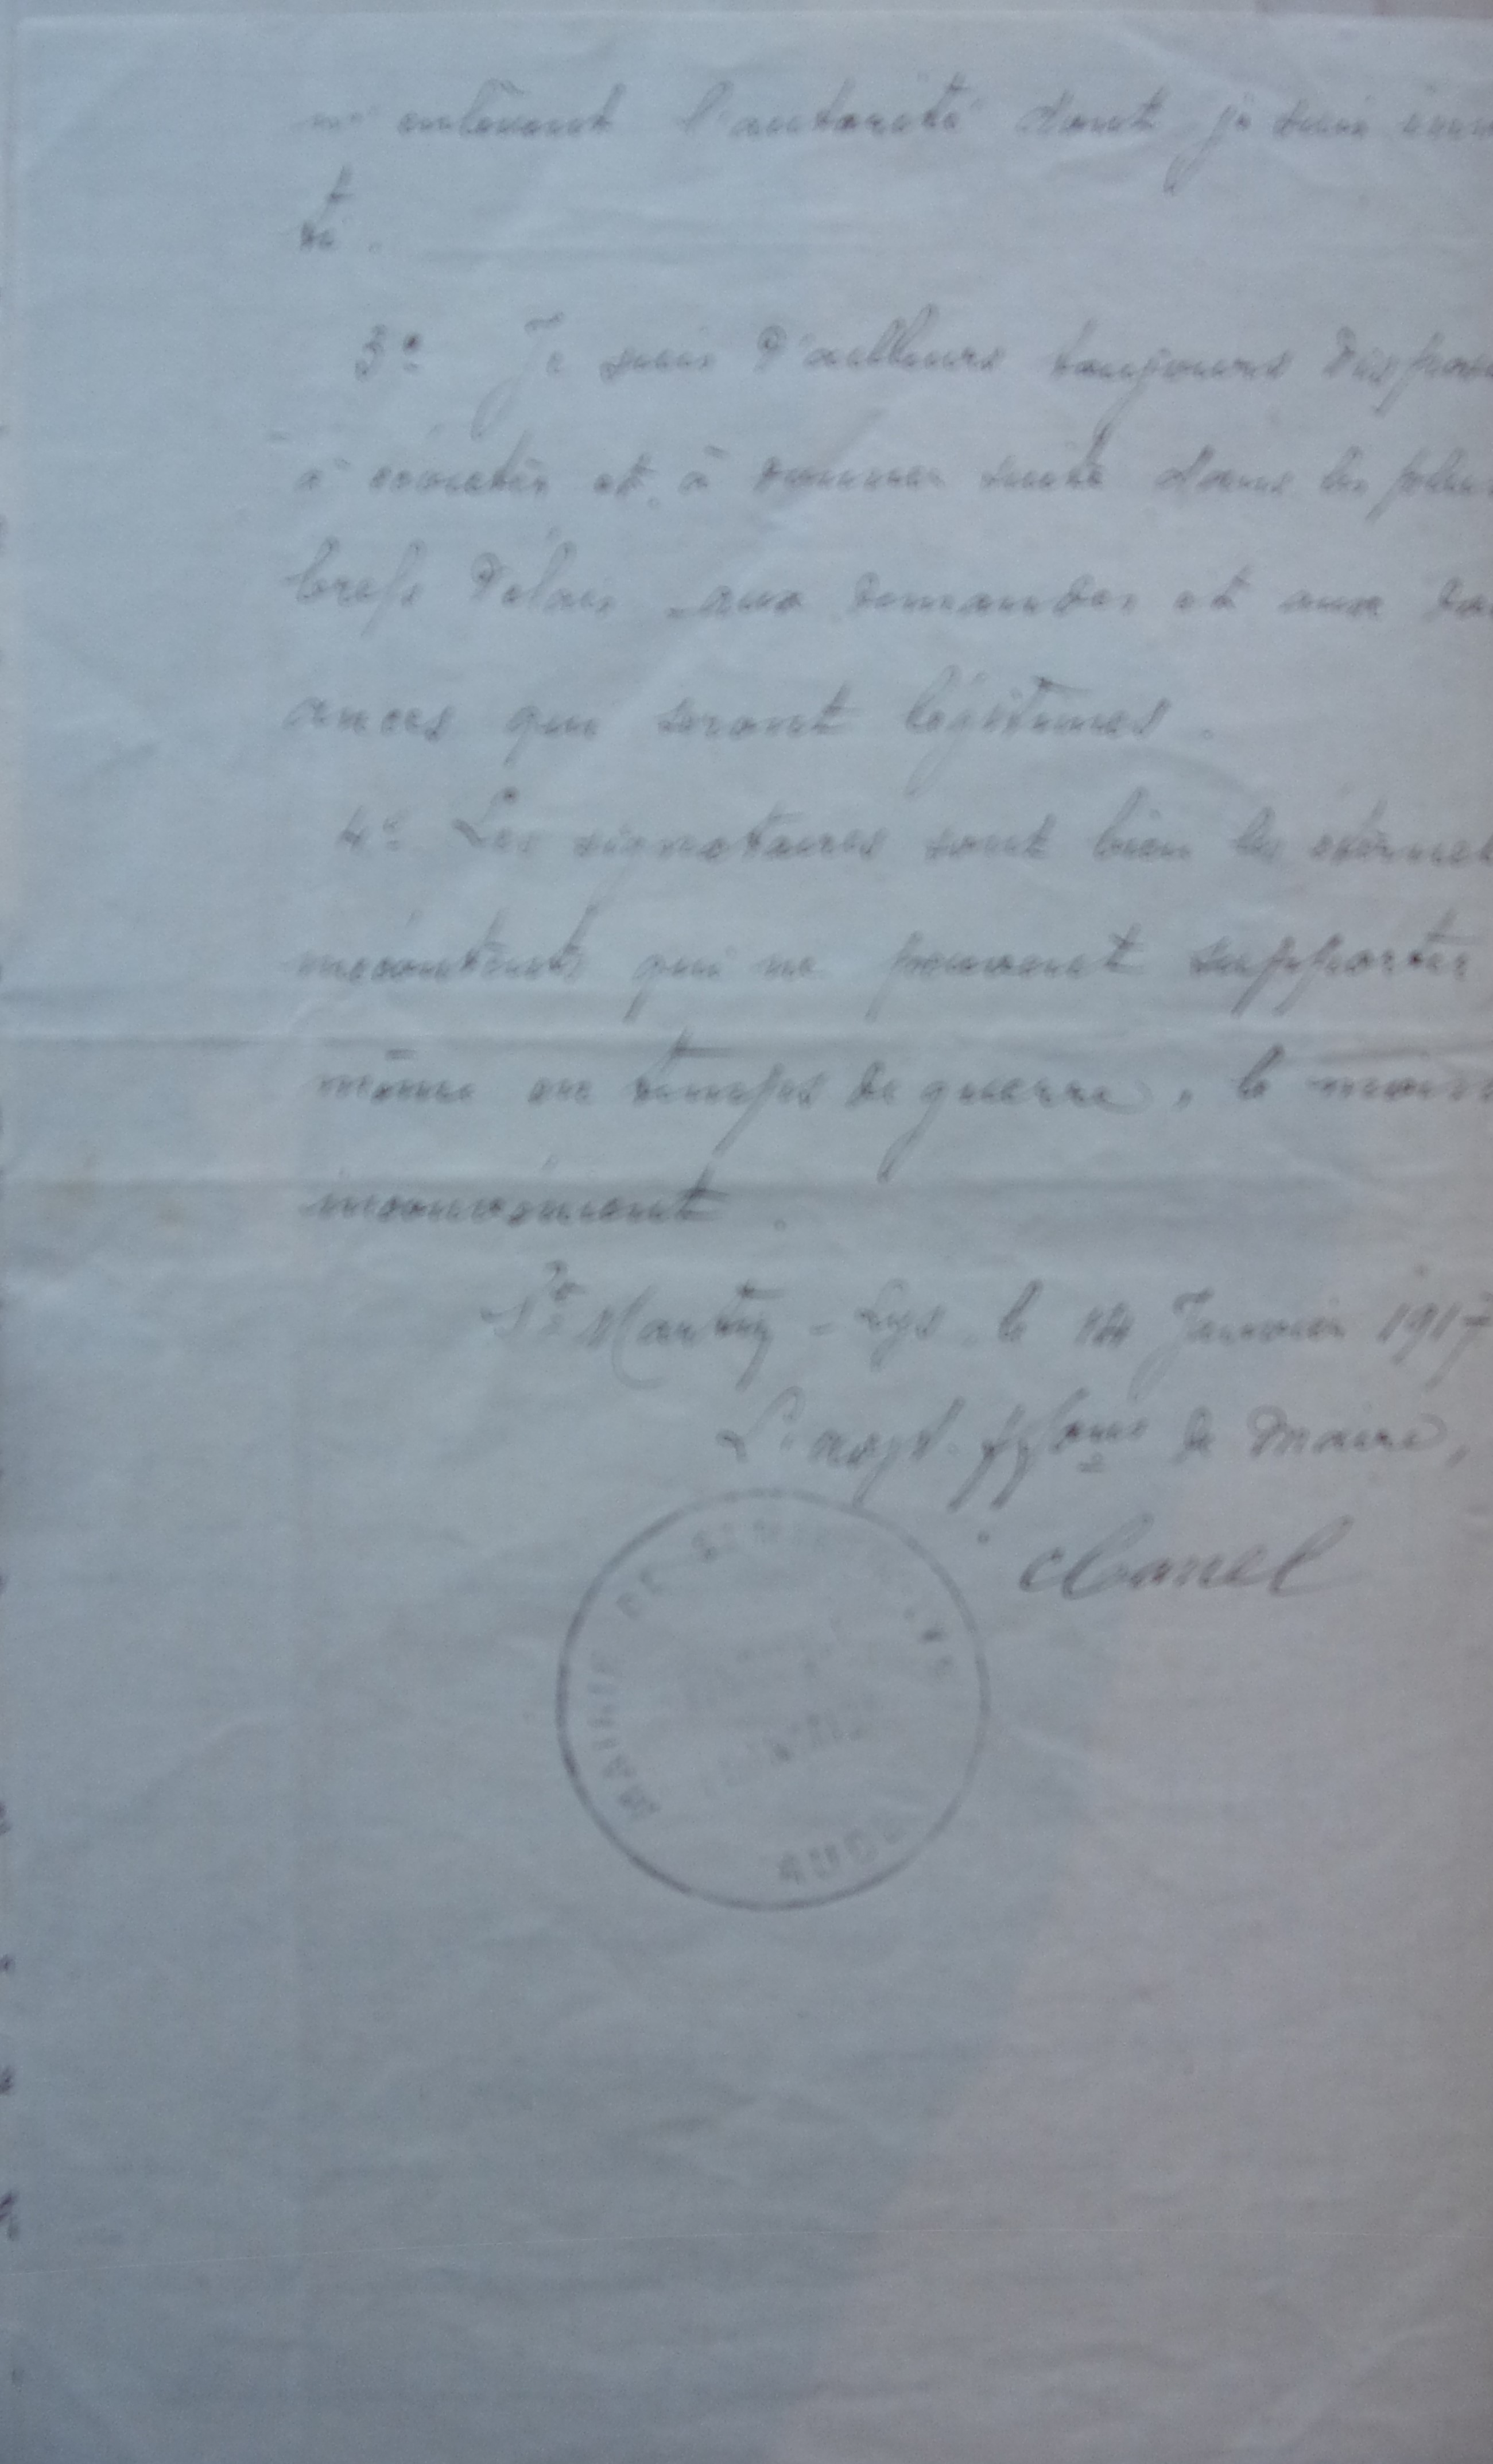 m'enlèvent l'autorité dont je suis inves
ti.
3º Je suis d'ailleurs toujours disposé
à écouter et à donner suite dans les plus
brefs délais aux demandes et aux do
ances qui seront légitimes.
4º Les signataires sont bien les éternels
mécontents qui ne peuvent supporter
même en temps de guerre, le moin
inconvénient.
St Martin-Lys, le 14 Janvier 1917
L'adjt. ff ons de Maire,
MAIRIE DE ST MARTIN-LYS
AUDE